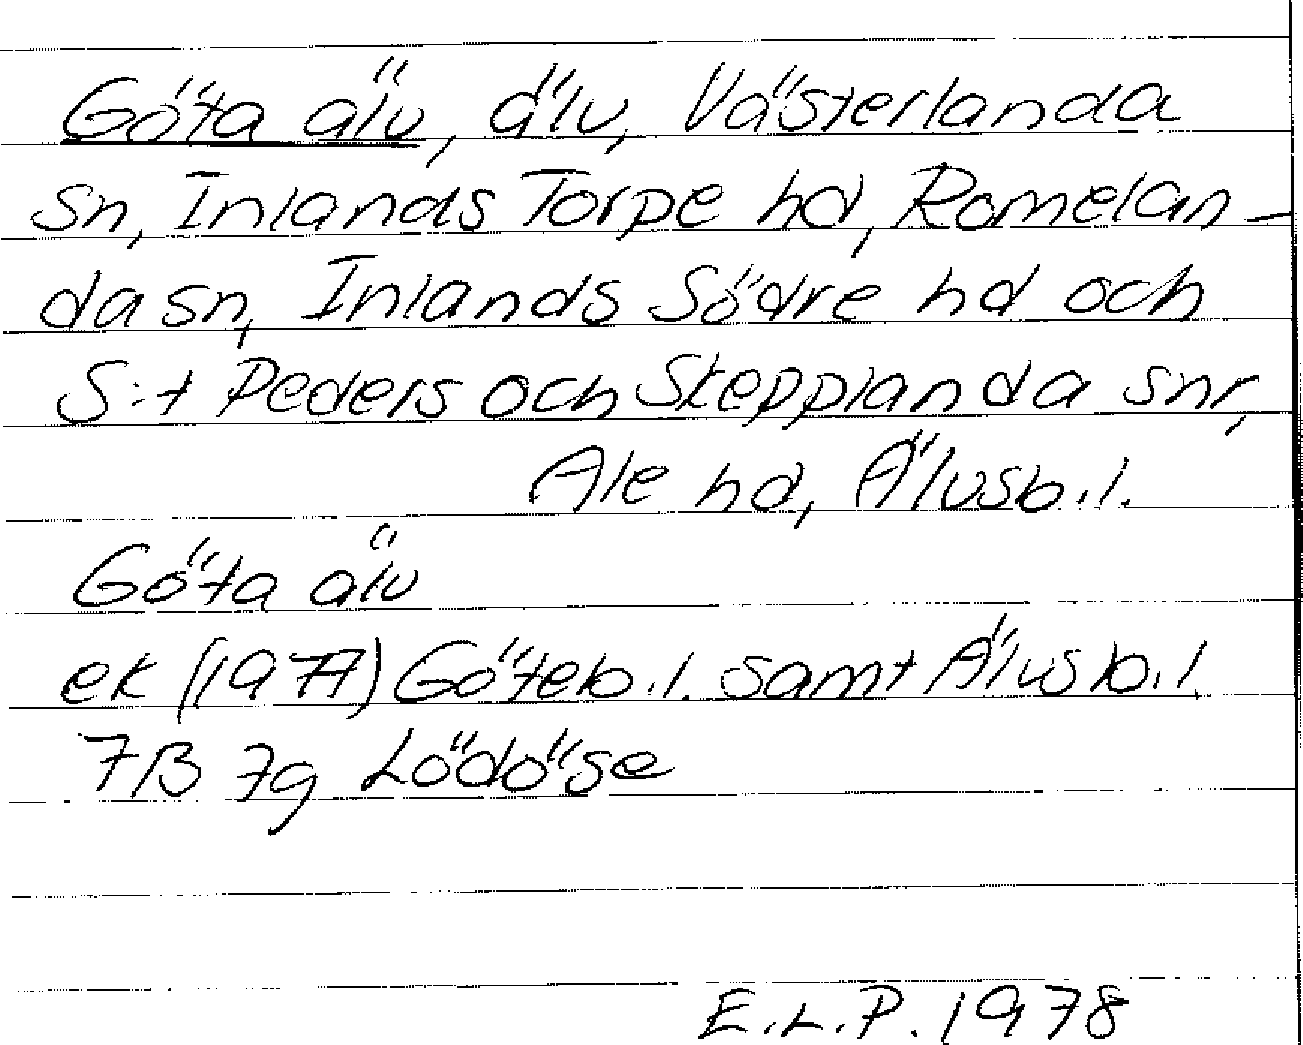 Göta älv, älv, Västerlanda
sn, Inlands Torpe hd, Romelan-
da sn, Inlands Södre hd och
S:t Peders och Skepplanda snr,
Ale hd, Älvsb.l.
Göta älv
ek (1977) Göteb.l. samt Älvsb.l
7B 7g Lödöse
E.L.P. 1978